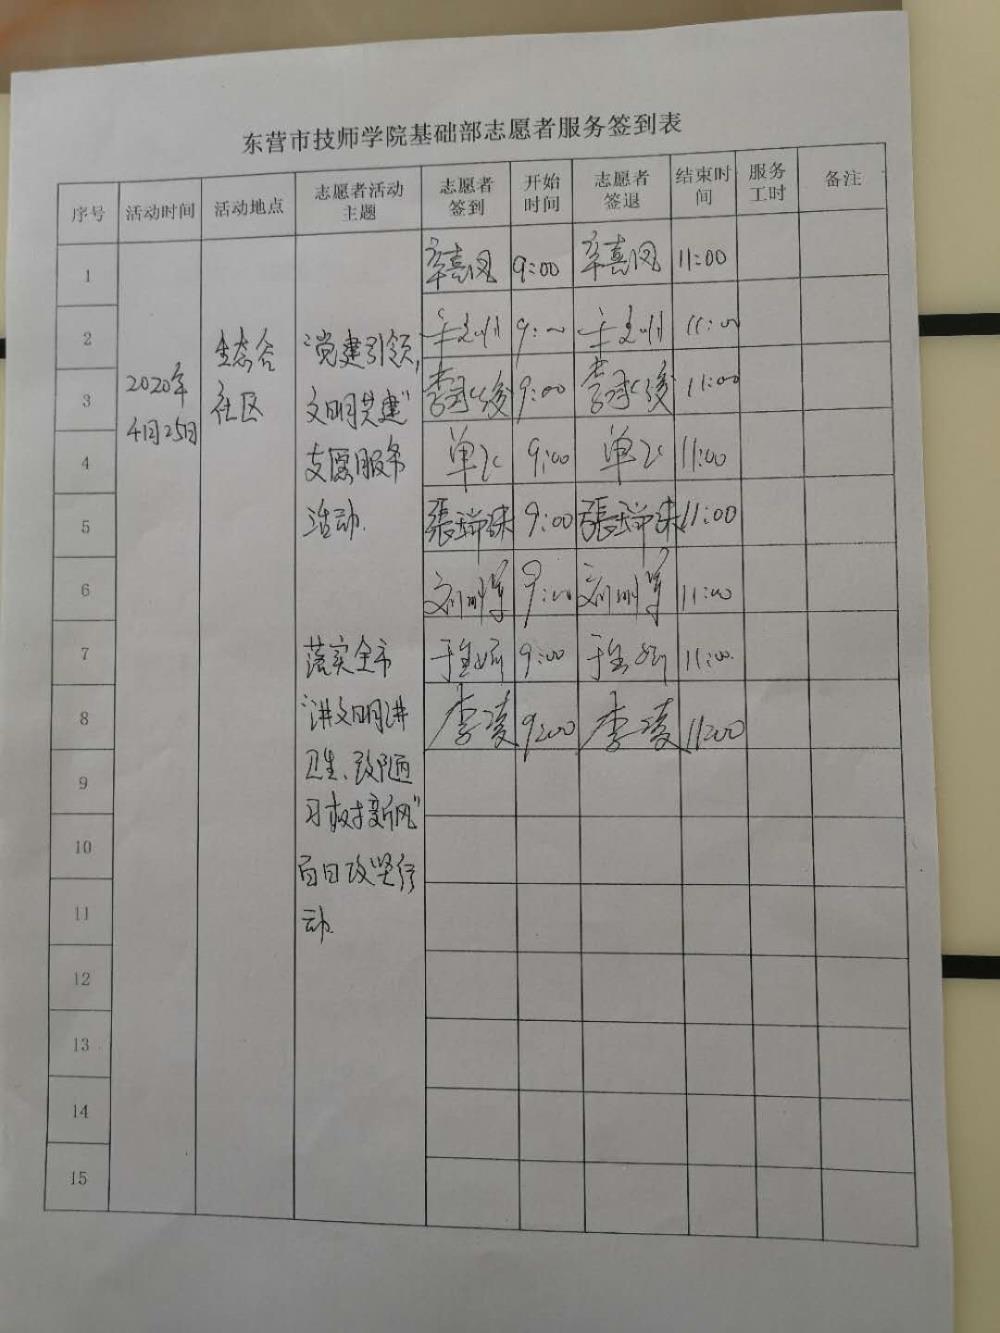 东营市技师学院基础部志愿者服务签到表
序号 活动时间 活动地点 志愿者活动主题 志愿者签到 开始时间 志愿者签退 结束时间 服务工时 备注
1 辛喜凤 9:00 辛喜凤 11:00
2 9:00 11:00
3 9:00 11:00
4 单 9:00 单 11:00
5 張瑞珠 9:00 張瑞珠 11:00
6 刘明军 9:00 刘明军 11:00
7 9:00 11:00
8 李凌 9:00 李凌 11:00
9
10
11
12
13
14
15
2020年
4月25日
生态谷
社区
“党建引领,
文明共建”
志愿服务
活动.
落实全市
“讲文明讲
卫生、改陋
习树新风”
百日攻坚行
动.